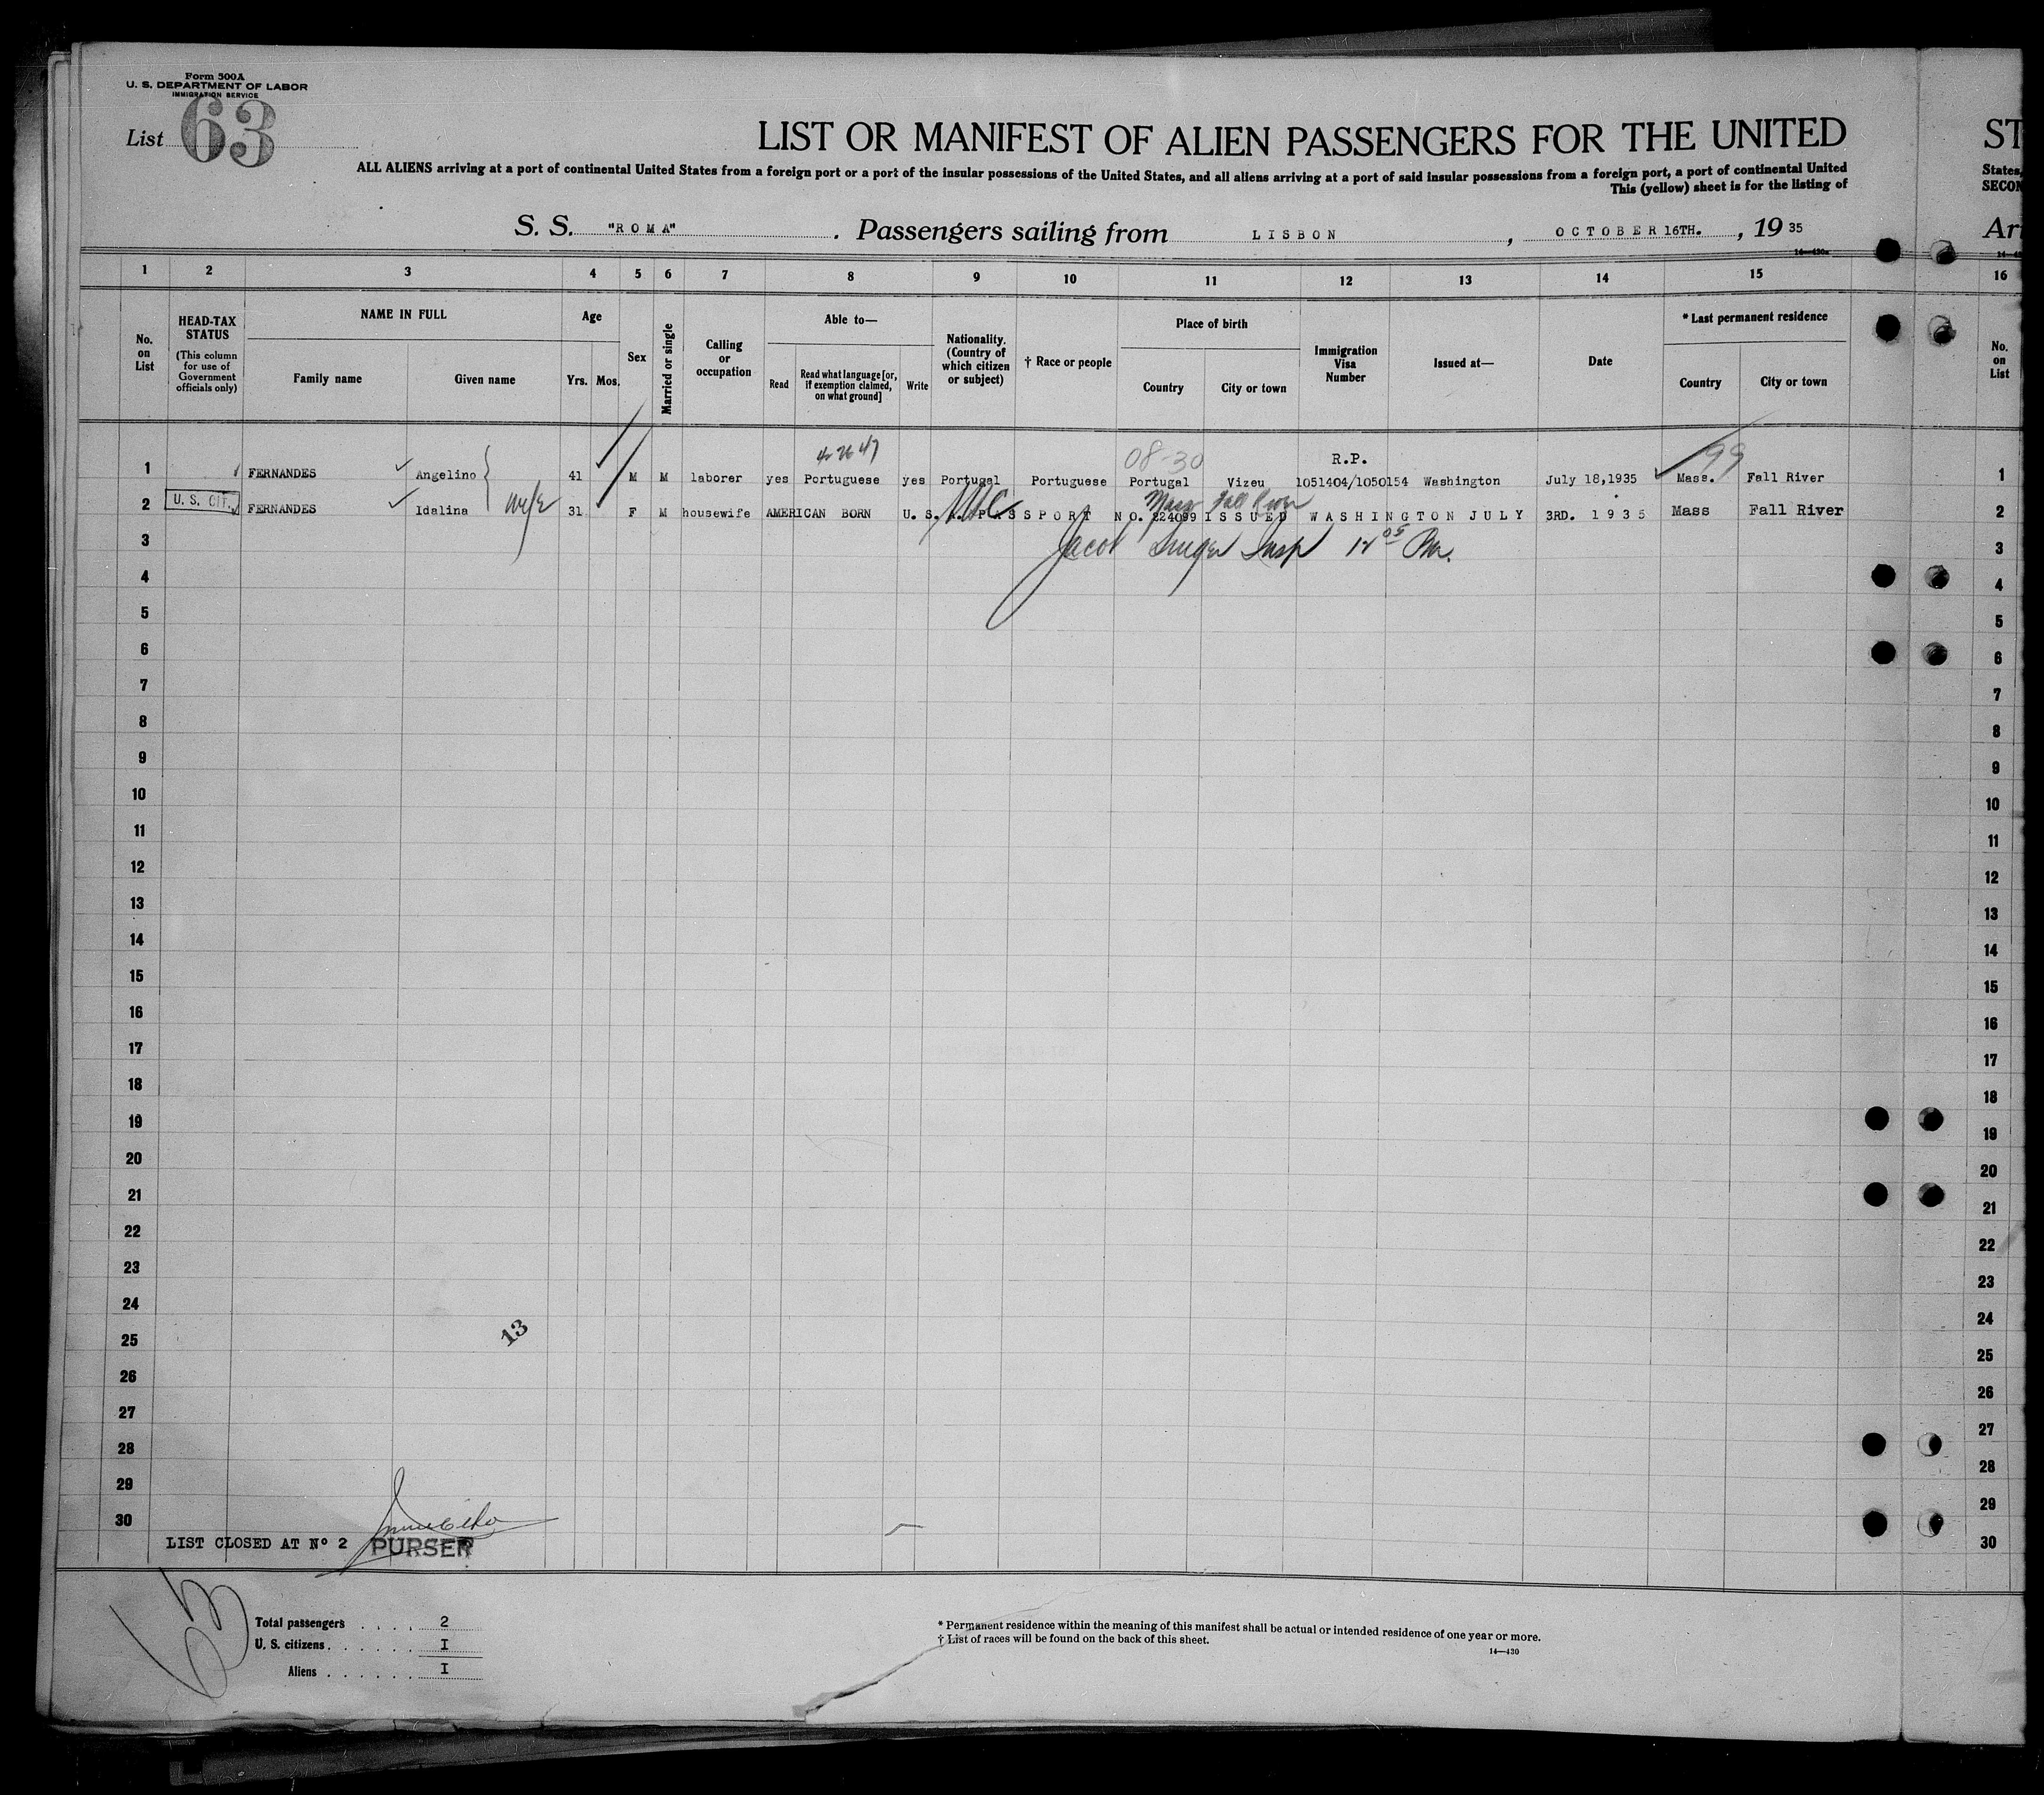 Form 500A
U. S. DEPARTMENT OF LABOR
IMMIGRATION SERVICE
List 63
LIST OR MANIFEST OF ALIEN PASSENGERS FOR THE UNITED ST
ALL ALIENS arriving at a port of continental United States from a foreign port or a port of the insular possessions of the United States, and all aliens arriving at a port of said insular possessions from a foreign port, a port of continental United States,
This (yellow) sheet is for the listing of SECON
S. S. "ROMA". Passengers sailing from LISBON, OCTOBER 16TH., 1935 Ar
14—430a
1 2 3 4 5 6 7 8 9 10 11 12 13 14 15 16
No. on List
HEAD-TAX STATUS
(This column for use of Government officials only)
NAME IN FULL
Family name Given name
Age
Yrs. Mos.
Sex
Married or single
Calling or occupation
Able to—
Read
Read what language [or, if exemption claimed, on what ground]
Write
Nationality. (Country of which citizen or subject)
† Race or people
Place of birth
Country City or town
Immigration Visa Number
Issued at—
Date
* Last permanent residence
Country City or town
No. on List
08-30 R.P. 99
1 FERNANDES Angelino 41 M M laborer yes Portuguese yes Portugal Portuguese Portugal Vizeu 1051404/1050154 Washington July 18,1935 Mass. Fall River 1
Mass Fall River
2 U. S. CIT. FERNANDES Idalina wife 31 F M housewife AMERICAN BORN U. S. A. PASSPORT NO. 224099 ISSUED WASHINGTON JULY 3RD. 1935 Mass Fall River 2
3 Jacob Insp 12 05 Pm. 3
4 4
5 5
6 6
7 7
8 8
9 9
10 10
11 11
12 12
13 13
14 14
15 15
16 16
17 17
18 18
19 19
20 20
21 21
22 22
23 23
24 24
13
25 25
26 26
27 27
28 28
29 29
30 30
LIST CLOSED AT Nº 2 PURSER
63
Total passengers . . . . 2
U. S. citizens . . . . . . I
Aliens . . . . . . I
* Permanent residence within the meaning of this manifest shall be actual or intended residence of one year or more.
† List of races will be found on the back of this sheet.
14—430